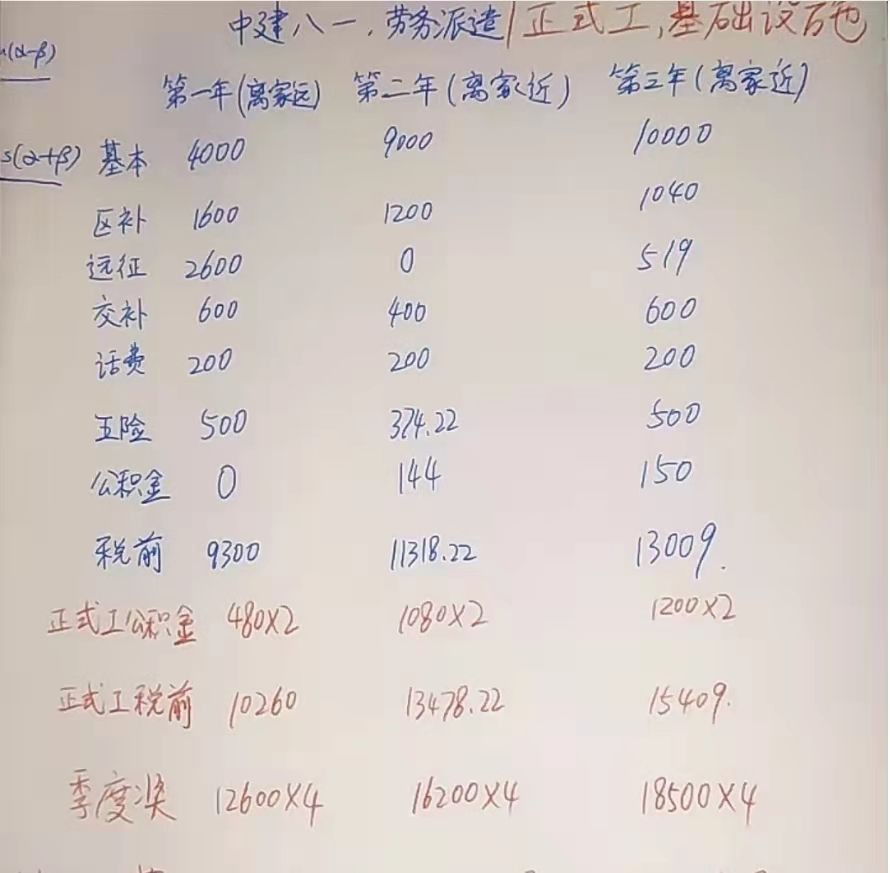 中建八一,劳务派遣/正式工,基础设石也
n(α-β)
第一年(离家远) 第二年(离家近) 第三年(离家近)
s(α+β)
基本 4000 9000 10000
区补 1600 1200 1040
远征 2600 0 519
交补 600 400 600
话费 200 200 200
五险 500 374.22 500
公积金 0 144 150
税前 9300 11318.22 13009.
正式工公积金 480×2 1080×2 1200×2
正式工税前 10260 13478.22 15409.
季度奖 12600×4 16200×4 18500×4